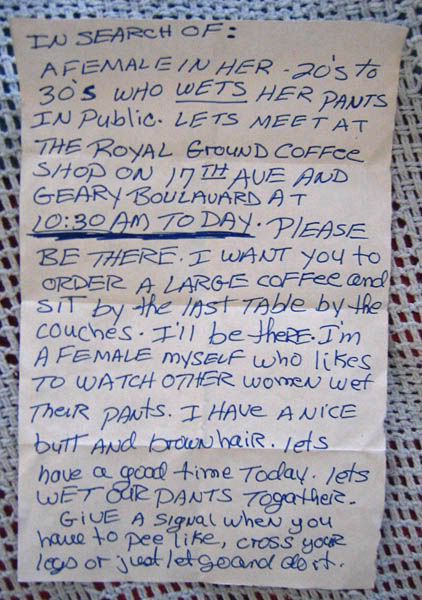 IN SEARCH OF:
A FEMALE IN HER - 20's to
30's WHO WETS HER PANTS
IN Public. LETS MEET AT
THE ROYAL GROUND COFFEE
SHOP ON 17TH AUE AND
GEARY BOULAUARD AT
10:30 AM TO DAY. PLEASE
BE THERE. I WANT YOU to
ORDER A LARGE COFFEE and
SIT by the LAST TABLE by the
couches. I'll be theRe. I'm
A FEMALE MYSELF who likes
TO WATCH OTHER women wet
TheiR PANTS. I HAVE A NICE
butt AND brown haiR. lets
have a good time Today. lets
WET OUR PANTS TogatheiR.
GiUE A Signal when you
haue to pee like, cross your
legs or just let go and do it.